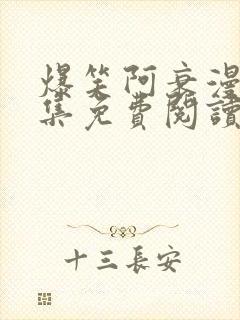 爆笑阿衰漫
集免費閱讀
十三長安